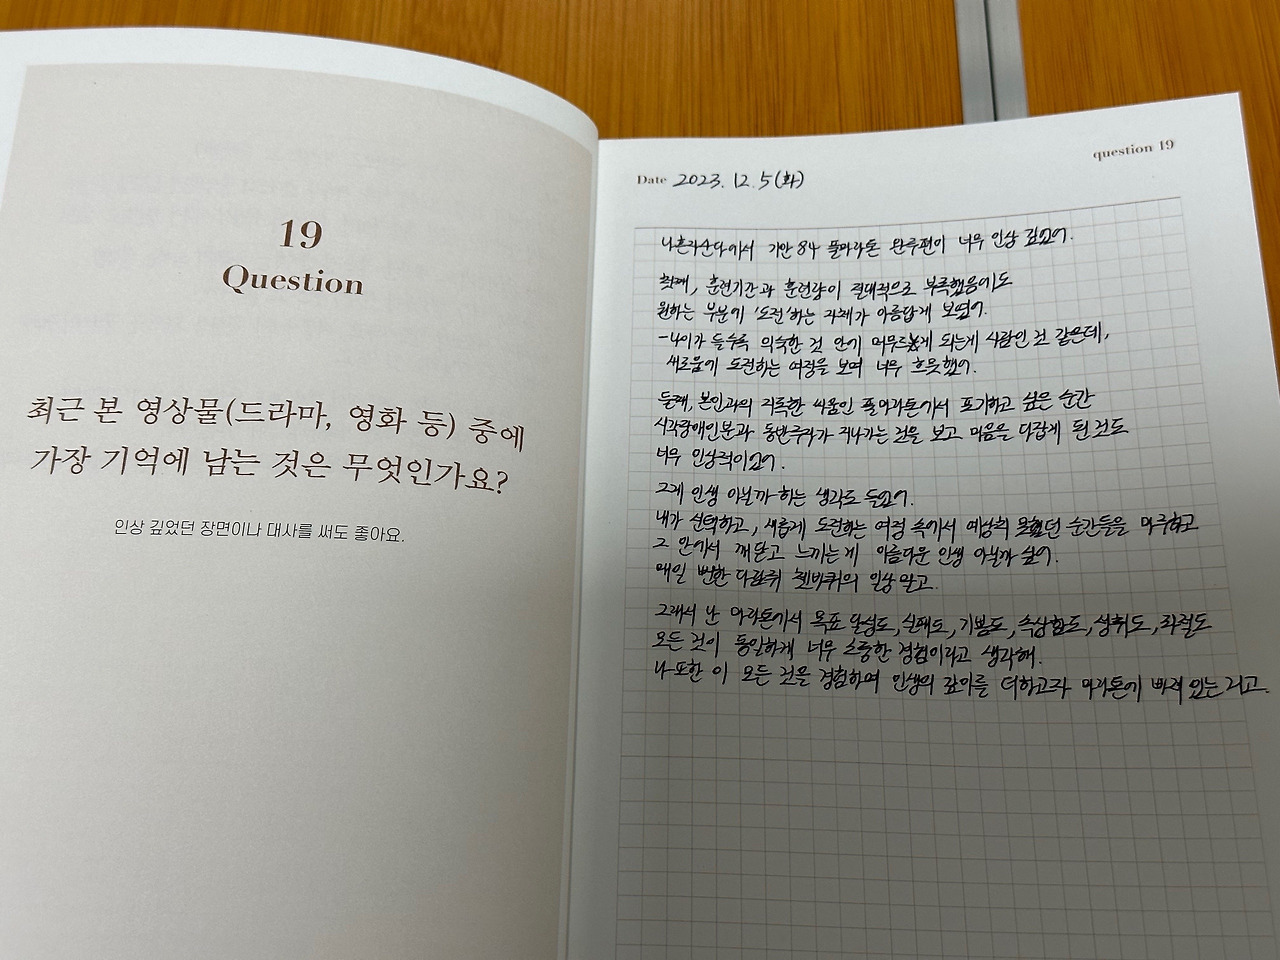 19
Question
최근 본 영상물(드라마, 영화 등) 중에
가장 기억에 남는 것은 무엇인가요?
인상 깊었던 장면이나 대사를 써도 좋아요.
question 19
Date 2023. 12. 5(화)
나혼자산다에서 기안84 풀마라톤 완주편이 너무 인상 깊었어.
첫째, 훈련기간과 훈련량이 절대적으로 부족했음에도
원하는 부분에 '도전'하는 자체가 아름답게 보였어.
- 나이가 들수록 익숙한 것 안에 머무르게 되는게 사람인 것 같은데,
새로움에 도전하는 여정을 보며 너무 흐뭇했어.
둘째, 본인과의 지독한 싸움인 풀마라톤에서 포기하고 싶은 순간
시각장애인분과 동반주자가 지나가는 것을 보고 마음을 다잡게 된 것도
너무 인상적이었어.
그게 인생 아닐까 하는 생각도 들었어.
내가 선택하고, 새롭게 도전하는 여정 속에서 예상치 못했던 순간들을 마주하고
그 안에서 깨닫고 느끼는게 아름다운 인생 아닐까 싶어.
매일 뻔한 다람쥐 쳇바퀴의 일상 말고.
그래서 난 마라톤에서 목표 달성도, 실패도, 기쁨도, 속상함도, 성취도, 좌절도
모든 것이 동일하게 너무 소중한 경험이라고 생각해.
나 또한 이 모든 것을 경험하며 인생의 깊이를 더하고자 마라톤에 빠져 있는 거고.